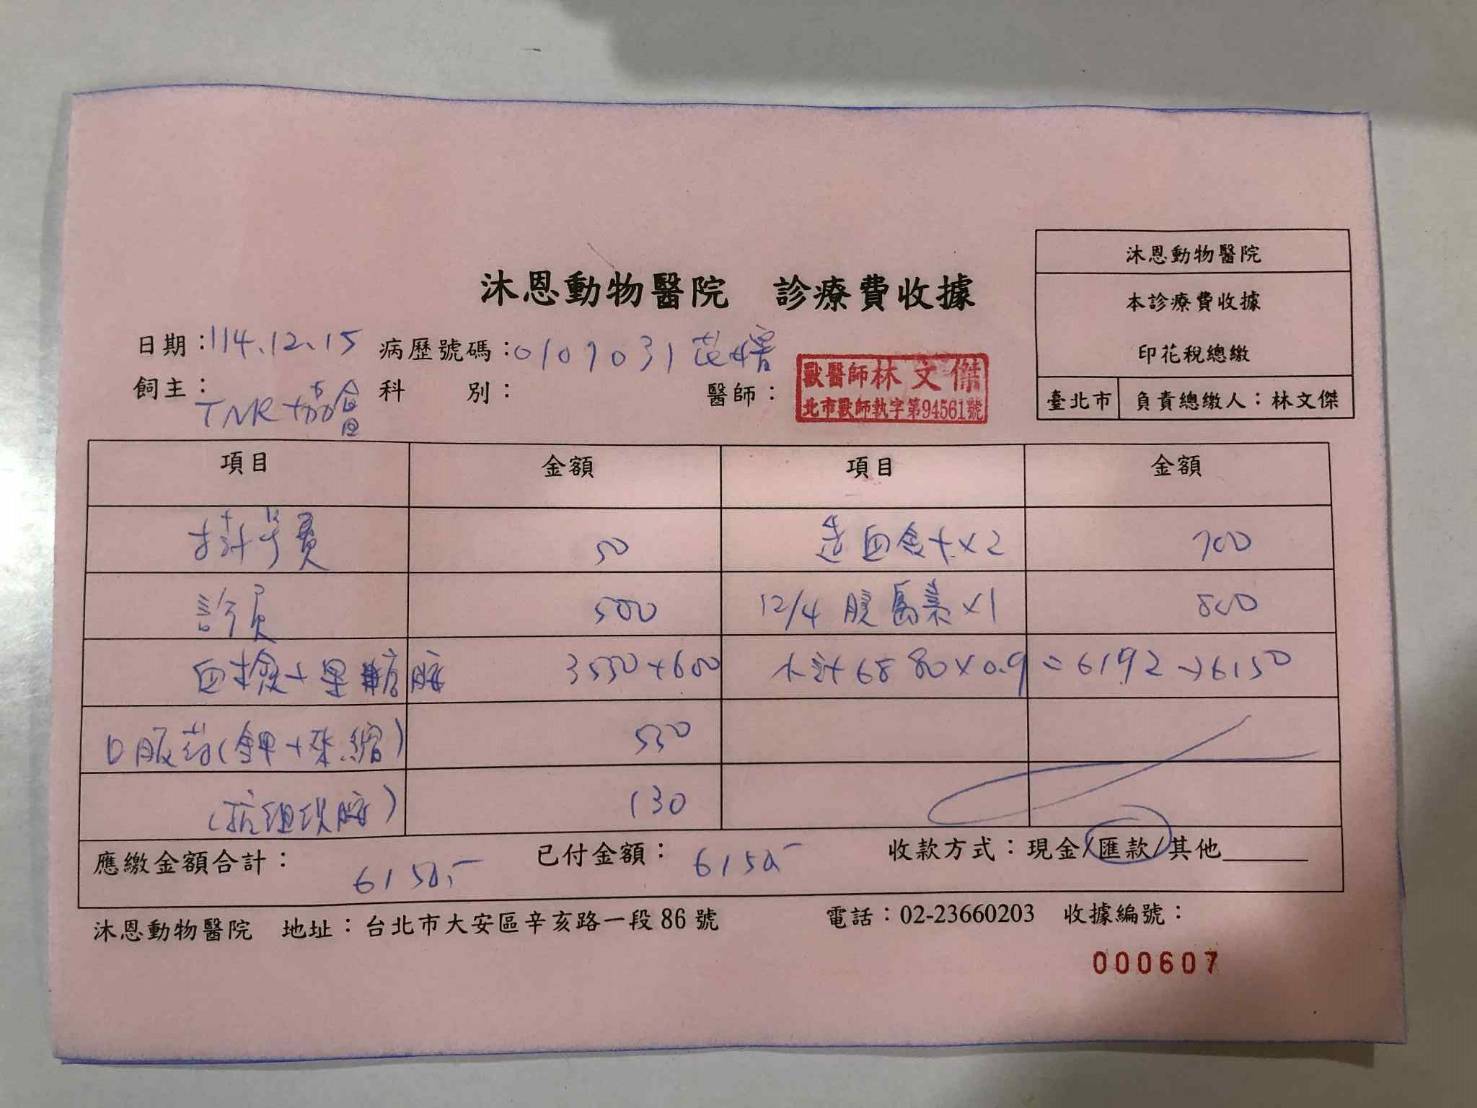 沐恩動物醫院
本診療費收據
印花稅總繳
臺北市 負責總繳人：林文傑
沐恩動物醫院 診療費收據
日期：114.12.15 病歷號碼：0107031
飼主：TNR協會 科 別： 醫師：
獸醫師林文傑
北市獸師執字第94561號
項目 金額 項目 金額
掛号費 50 造血金卡x2 700
診費 500 12/4 胰島素x1 800
血檢+果糖胺 3550+600 小計6880x0.9=6192→6150
口服葯(鉀+來縮) 550
130
應繳金額合計：6150.- 已付金額：6150- 收款方式：現金/匯款/其他
沐恩動物醫院 地址：台北市大安區辛亥路一段86號 電話：02-23660203 收據編號：
000607